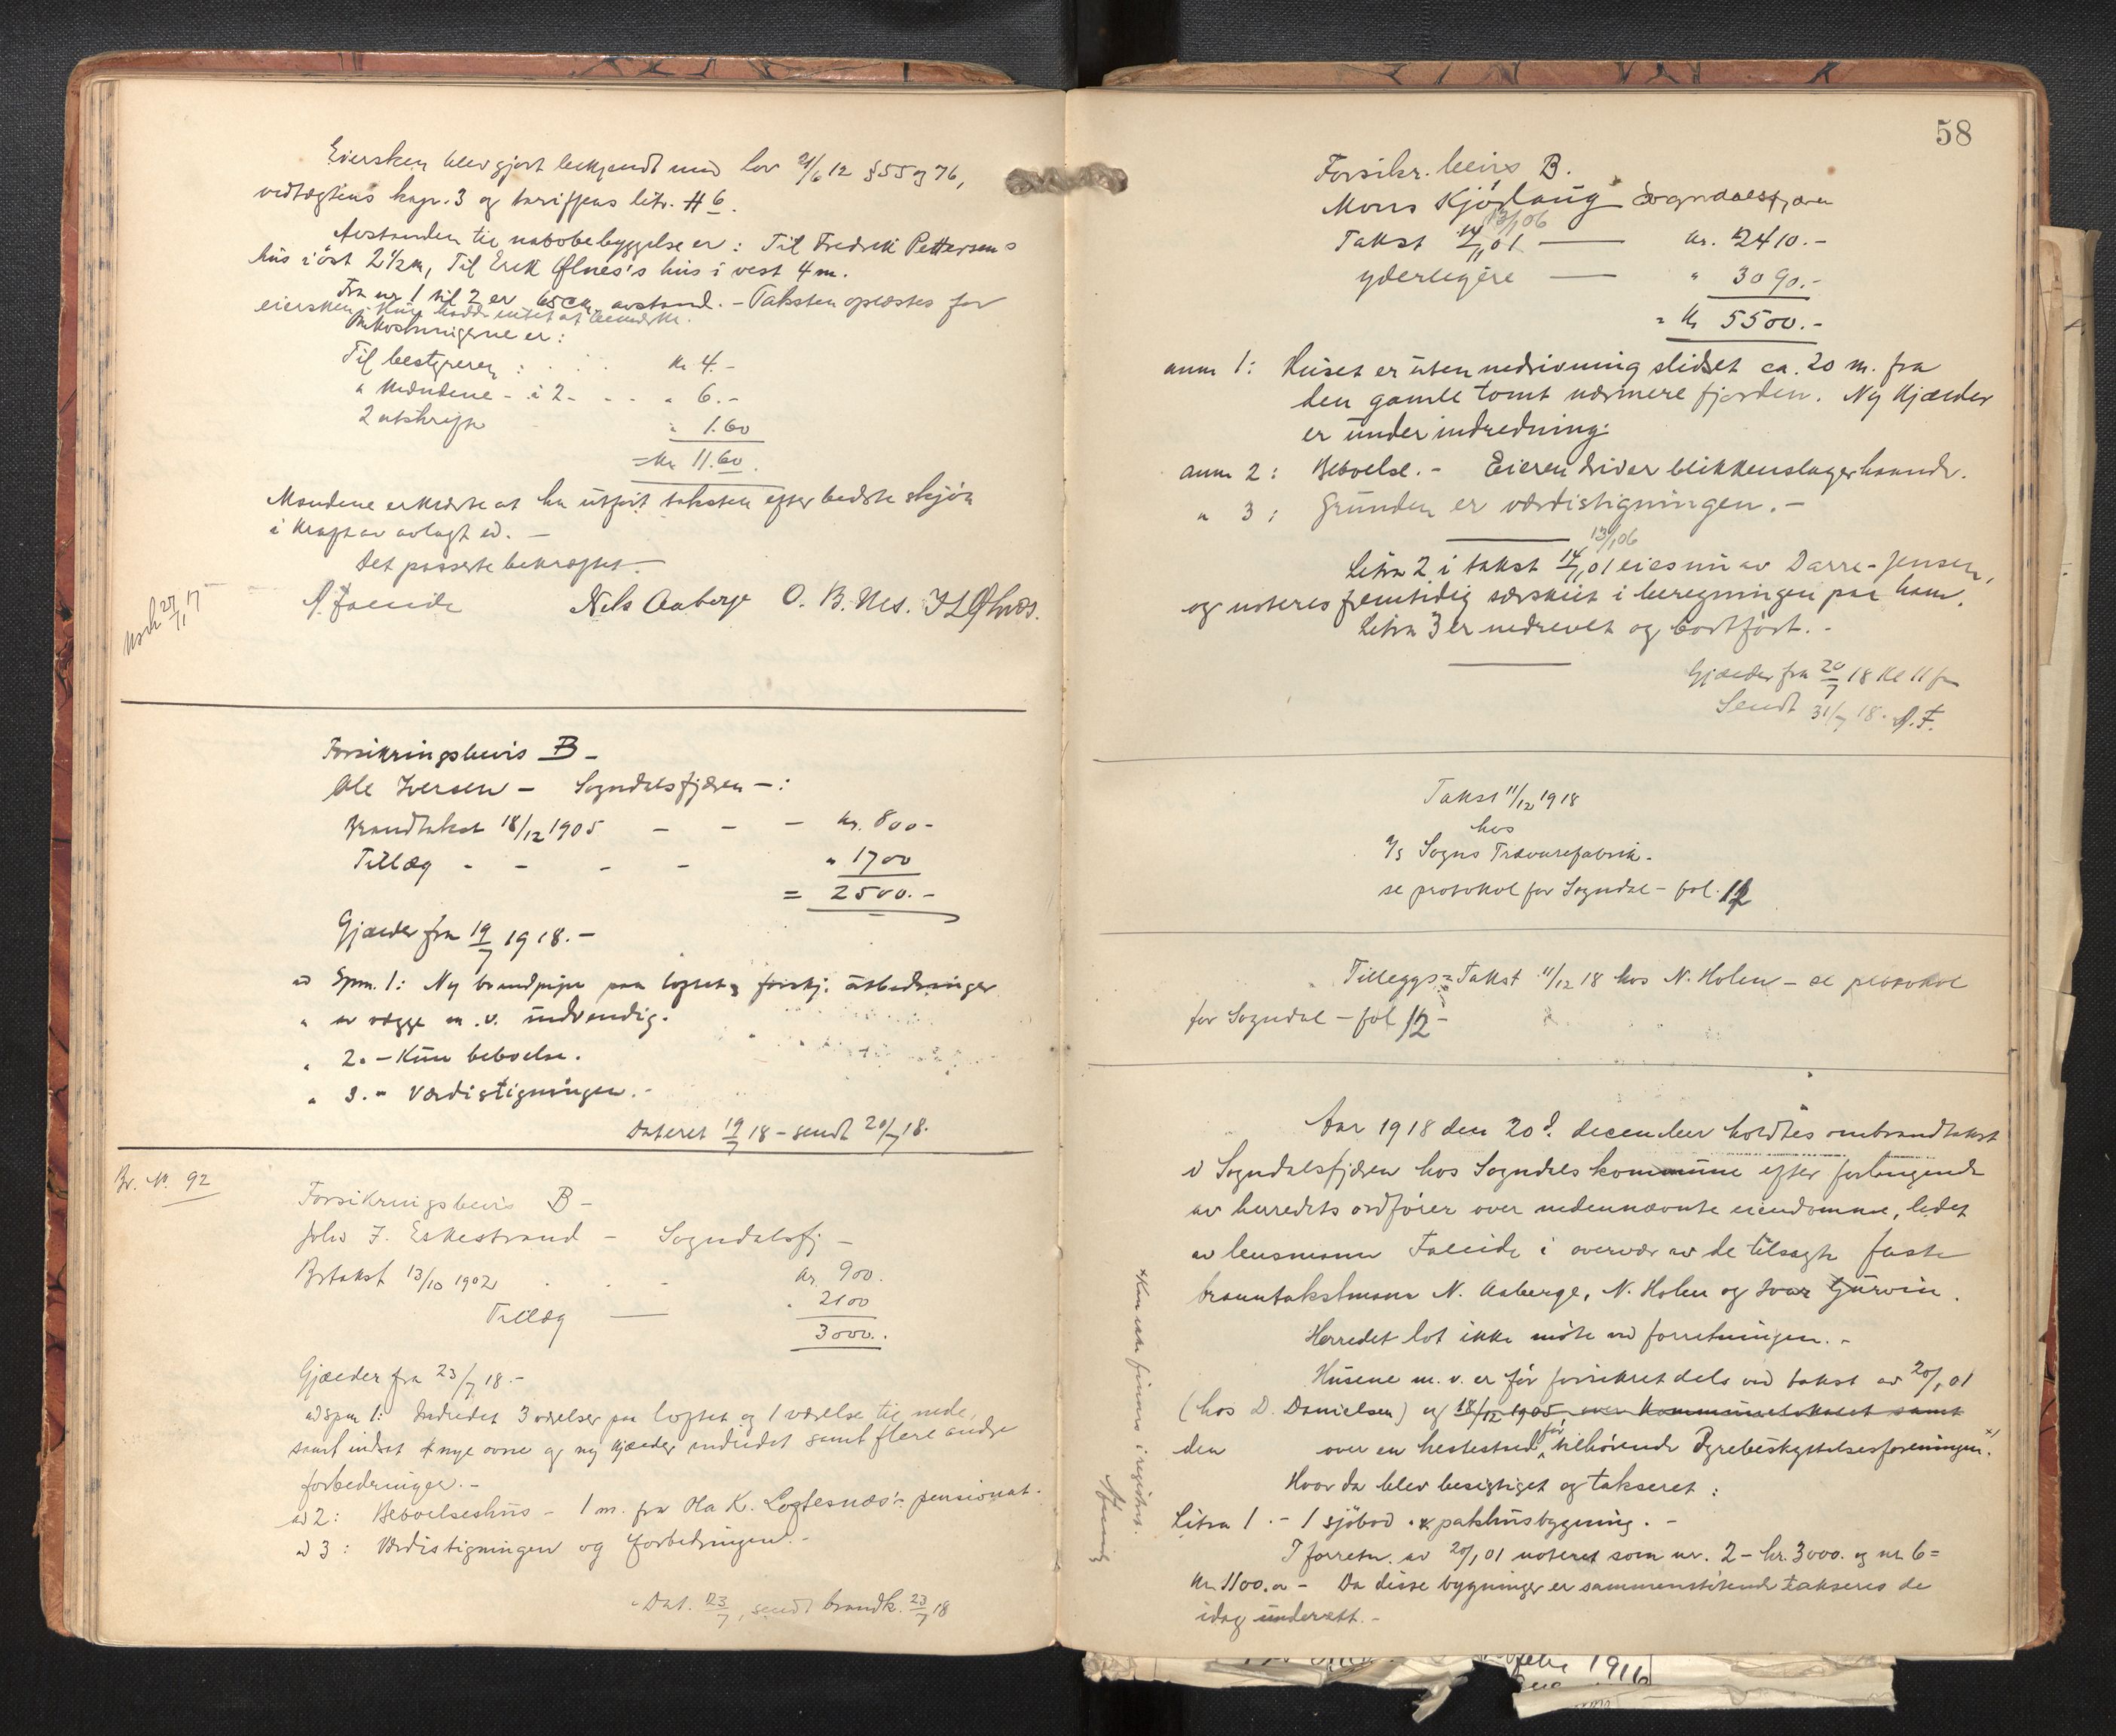 Eiersken blev gjort bekjendt med lov 21/6 12 §55 og 76,
vedtægtens kap. 3 og tariffens litr. H 6.
Avstanden til nabobebyggelse er: Til Fredrik Pettersens
hus i öst 2 1/2 m, Til Erik Ølnes's hus i vest 4 m.
Fra nr 1 til 2 er 65 cm avstand. - Taksten oplæstes for
eiersken. Hun hadde intet at bemærke.
Omkostningerne er:
Til bestyreren : . . kr 4.-
" Mændene - à 2 - . . " 6.-
2 utskrifter " 1.60
= Kr 11.60.
Mændene erklærte at ha utfört taksten efter bedste skjön
i kraft av avlagt ed. -
Det passerte bekræftes. -
A. Faleide Nils Aaberge O. B. Nes. I L Ølnes.
Usch 27/11 17
Forsikringsbevis B -
Ole Iversen - Sogndalsfjæren - :
Brandtakst 18/12 1905 - - - kr. 800 -
Tillæg - - - - " 1700
= 2500.-
Gjælder fra 19/7 1918. -
ad Spm. 1: Ny brandpipe paa loftet, forskj. utbedringer
" av vægge m. v. indvendig.
" 2. - Kun beboelse.
" 3. - Værdistigningen. -
Dateret 19/7 18 - sendt 20/7 18.
Br. Nr. 92
Forsikringsbevis B -
John J. Eskestrand - Sogndalsfj -
Brtakst 13/10 1902 . . - kr. 900.
Tillæg — " 2100
3000..
Gjælder fra 23/7 18. -
ad spm 1: Indredet 3 værelser paa loftet og 1 værelse til nede,
samt indsat 4 nye ovne og ny kjælder indredet samt flere andre
forbedringer. -
ad 2: Beboelseshus - 1 m. fra Ola K. Loftesnæs's pensionat.
ad 3: Værdistigningen og forbedringen. -
Dat. 23/7, sendt brandk. 23/7 18
58
Forsikr. bevis B.
Mons Kjörlaug Sogndalsfjæren
13/1 06
Takst 14/11 01 — kr. 2410.-
yderligere — " 3090.-
= Kr 5500.-
anm 1: Huset er uten nedrivning slidset ca. 20 m. fra
den gamle tomt nærmere fjorden. Ny Kjælder
er under indredning.
anm 2: Beboelse. - Eieren driver blikkenslagerhaandv.
" 3: Grunden er værdistigningen. -
13/1 06
Litra 2 i takst 14/11 01 eies nu av Darre-Jensen,
og noteres fremtidig særskilt i beregningen paa ham.
Litra 3 er nedrevet og bortfört. -
Gjælder fra 20/7 18 Kl 11 fm
Sendt 31/7 18. A.F.
Takst 11/12 1918
hos
A/s Sogns Trævarefabrik.
se protokol for Sogndal - fol. 12
Tilleggs-Takst 11/12 18 hos N. Holen - se protokol
for Sogndal - fol 12 -
Aar 1918 den 20d. december holdtes ombrandtakst
i Sogndalsfjæren hos Sogndals kommune efter forlangende
av herredets ordförer over nedennævnte eiendomme, ledet
av lensmann Faleide i overvær av de tilsagte faste
branntakstmenn N. Aaberge, N. Holen og Ivar Gurvin.
Herredet lot ikke möte ved forretningen. -
Husene m. v. er för forsikret dels ved takst av 20/1 01
(hos D. Danielsen) og 18/12 1905 over kommunelokalet samt
den over en hestestald för tilhörende Dyrebeskyttelsesforeningen. x)
Hvor da blev besigtiget og takseret:
Litra 1 . - 1 sjöbod & pakhusbygning. -
I forretn. av 20/1 01 noteret som nr. 2 - kr. 3000. og nr 6 =
kr. 1100.00 - Da disse bygninger er sammenstötende takseres de
idag underett. -
x Kan ikke finnes i registret.